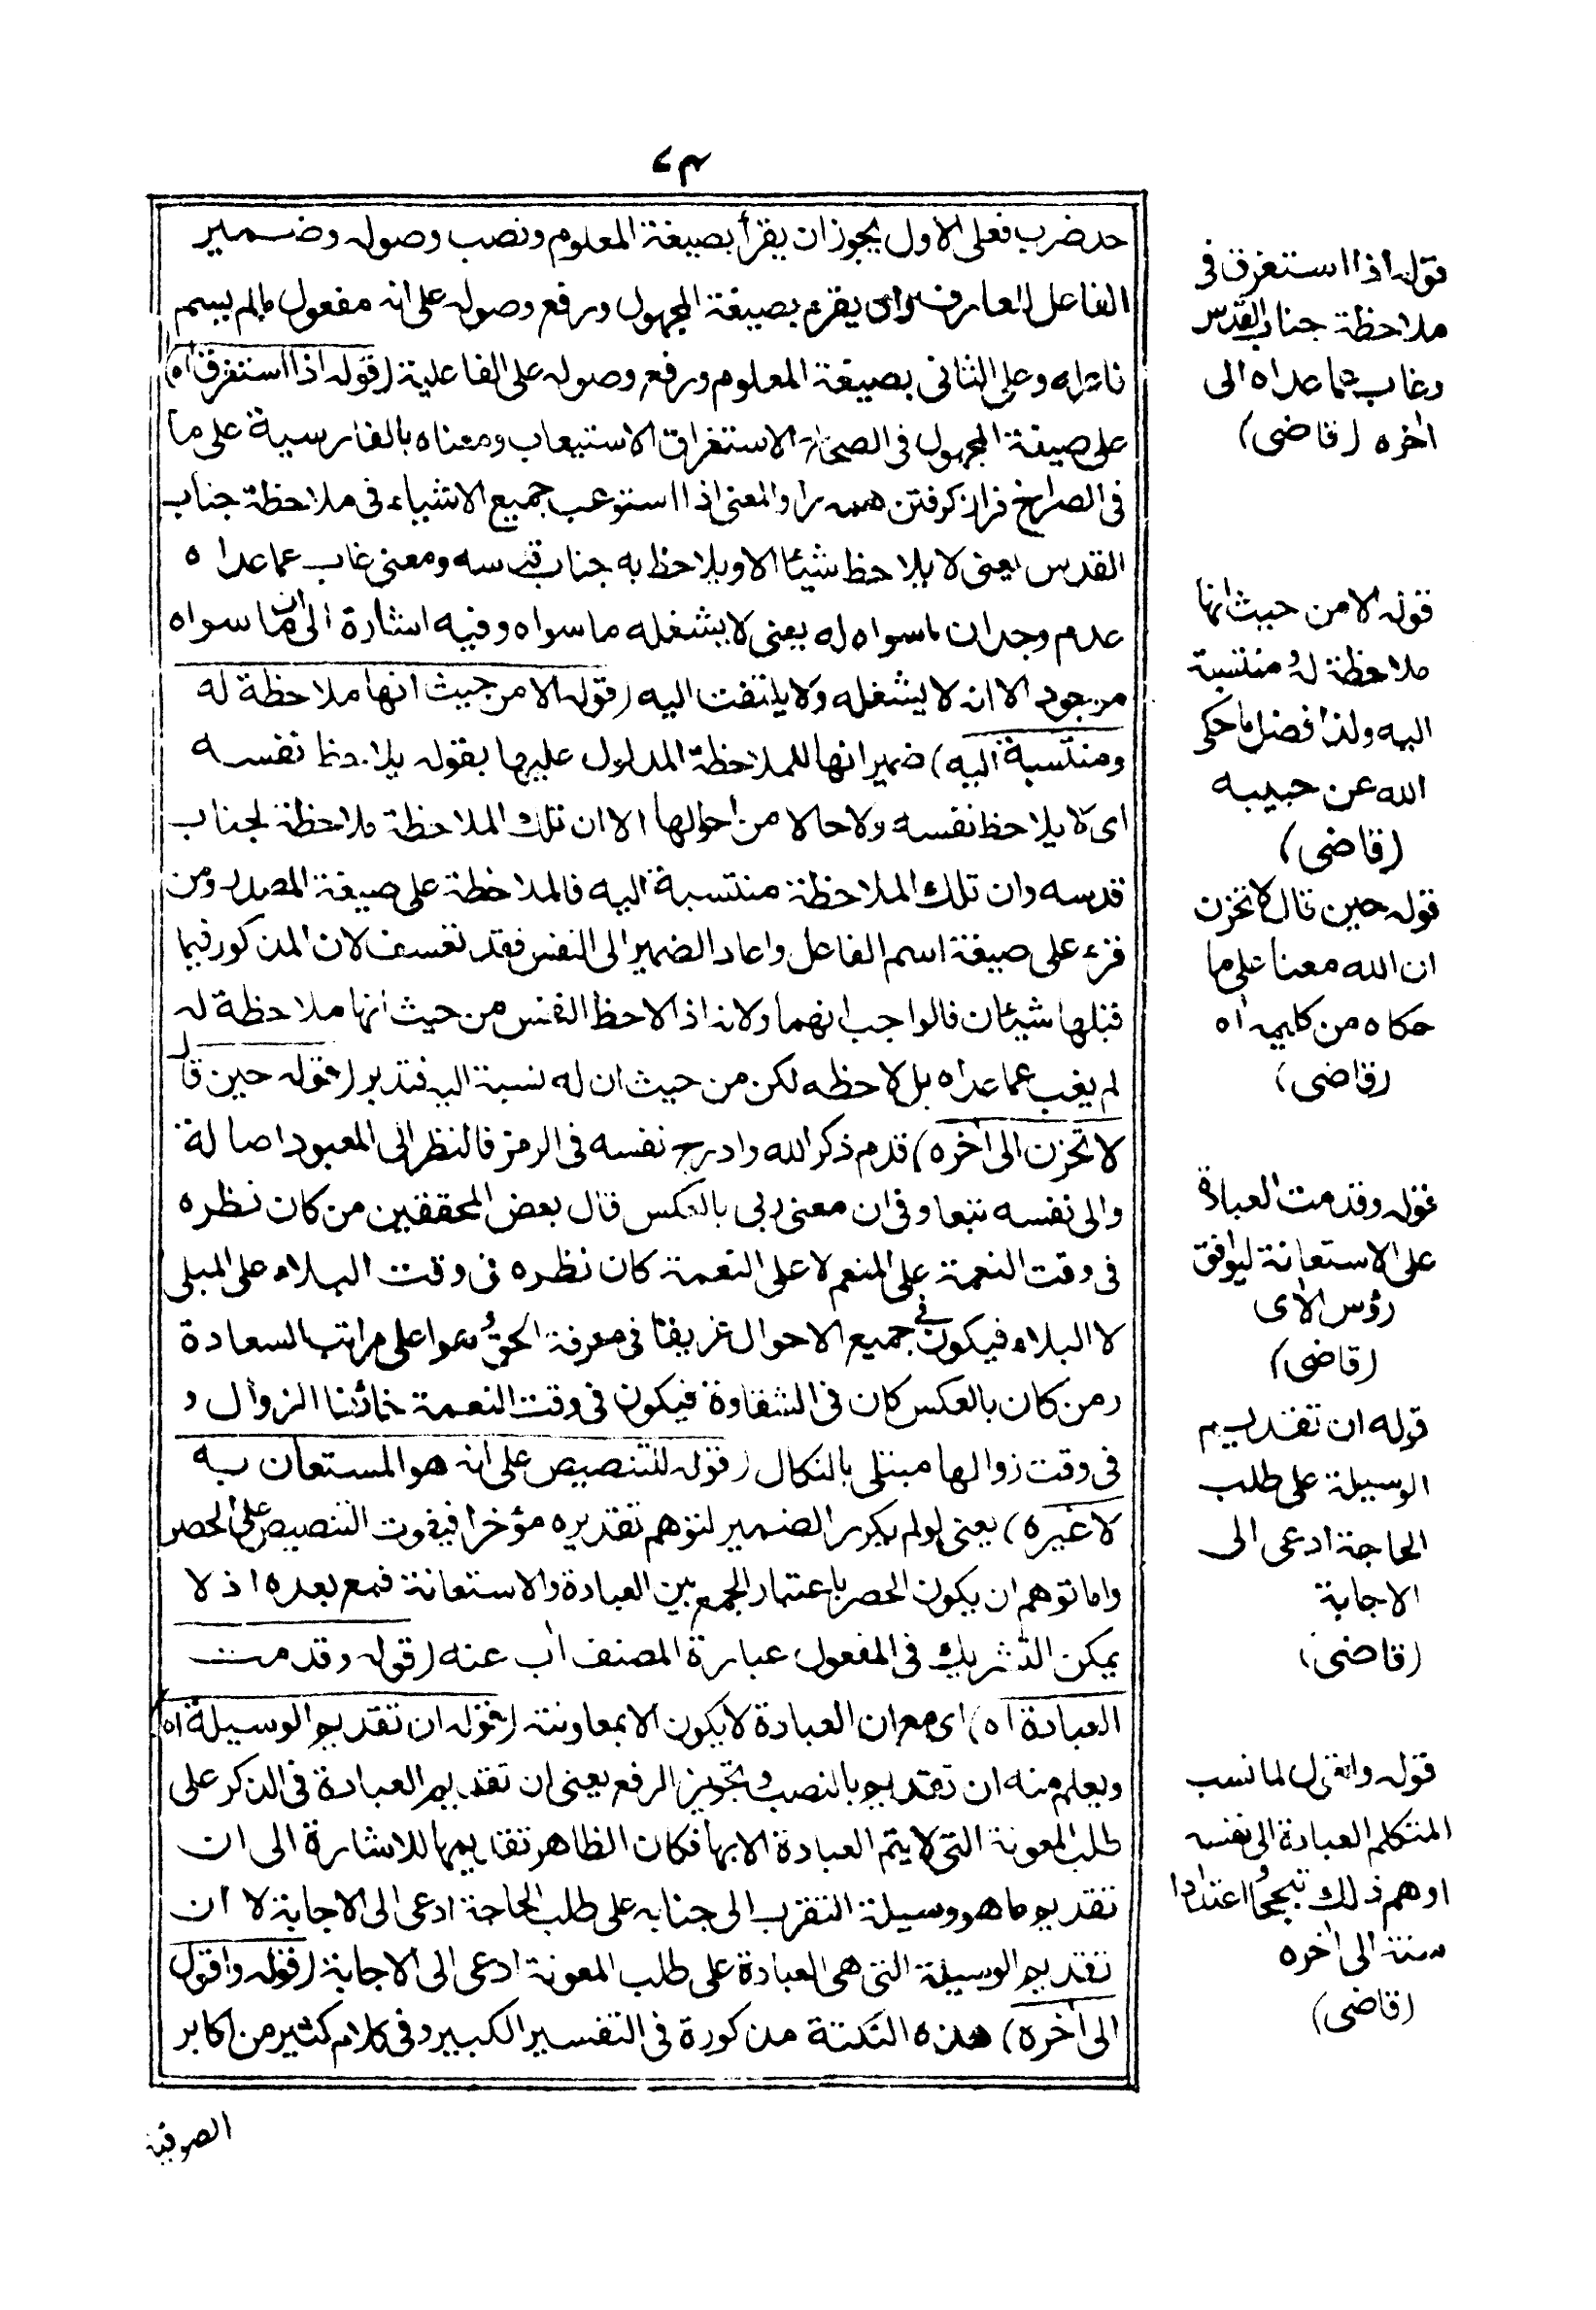 حد ضرب فعلى الاول يجوز ان يقرأ بصيغة المعلوم ونصب وصوله وضمير
الفاعل للعارف وان يقرء بصيغة المجهول ورفع وصوله على انه مفعول مالم يسم
فاعله وعلى الثانى بصيغة المعلوم ورفع وصوله على الفاعلية (قوله اذا استغرق اه)
على صيغة المجهول فى الصحاح الاستغراق الاستيعاب ومعناه بالفارسية على ما
فى الصراح فراز كرفتن همه را والمعنى اذا استوعب جميع الاشياء فى ملاحظة جناب
القدس يعنى لا يلاحظ شيئا الا ويلاحظ به جناب قدسه ومعنى غاب عما عداه
عدم وجدان ماسواه له يعنى لا يشغله ما سواه وفيه اشارة الى ان ما سواه
موجود الا انه لا يشغله ولا يلتفت اليه (قوله الا من حيث انها ملاحظة له
ومنتسبة اليه) ضمير انها للملاحظة المدلول عليها بقوله يلاحظ نفسه
اى لا يلاحظ نفسه ولا حالا من احوالها الا ان تلك الملاحظة ملاحظة لجناب
قدسه وان تلك الملاحظة منتسبة اليه فالملاحظة على صيغة المصدر ومن
قرء على صيغة اسم الفاعل واعاد الضمير الى النفس فقد تعسف لان المذكور فيما
قبلها شيئان فالواجب انهما ولانه اذا لاحظ النفس من حيث انها ملاحظة له
لم يغب عما عداه بل لاحظه لكن من حيث ان له نسبة اليه فتدبر (قوله حين قال
لا تحزن الى اخره) قدم ذكر الله وادرج نفسه فى الرمز فالنظر الى المعبود اصالة
والى نفسه تبعا وفى ان معى ربى بالعكس قال بعض المحققين من كان نظره
فى وقت النعمة على المنعم لا على النعمة كان نظره فى وقت البلاء على المبلى
لا البلاء فيكون فى جميع الاحوال غريقا فى معرفة الحق و سموا على مراتب السعادة
ومن كان بالعكس كان فى الشقاوة فيكون فى وقت النعمة خائفا الزوال و
فى وقت زوالها مبتلى بالنكال (قوله للتنصيص على انه هو المستعان به
لا غيره) يعنى لو لم يكرر الضمير لتوهم تقديره مؤخرا فيفوت التنصيص على الحصر
واما توهم ان يكون الحصر باعتبار الجمع بين العبادة والاستعانة فمع بعده اذ لا
يمكن التشريك فى المفعول عبارة المصنف اب عنه (قوله وقدمت
العبادة اه) اى مع ان العبادة لا يكون الا بمعاونته (قوله ان تقديم الوسيلة اه)
ويعلم منه ان تقديم بالنصب وتجويز الرفع يعنى ان تقديم العبادة فى الذكر على
طلب المعونة التى لا يتم العبادة الا بها فكان الظاهر تقديمها للاشارة الى ان
تقديم ما هو وسيلة التقرب الى جنابه على طلب الحاجة ادعى الى الاجابة لا ان
تقديم الوسيلة التى هى العبادة على طلب المعونة ادعى الى الاجابة (قوله واقول
الى اخره) هذه النكتة مذكورة فى التفسير الكبير وفى كلام كثير من اكابر
الصوفية
قوله اذا استغرق فى
ملاحظة جناب القدس
وغاب عما عداه الى
اخره (قاضى)
قوله الا من حيث انها
ملاحظة له و منتسبة
اليه ولذا فضل ما حكى
الله عن حبيبه
(قاضى)
قوله حين قال لا تحزن
ان الله معنا على ما
حكاه من كليمه اه
(قاضى)
قوله وقدمت العبادة
على الاستعانة ليوافق
رؤس الاى
(قاضى)
قوله ان تقديم
الوسيلة على طلب
الحاجة ادعى الى
الاجابة
(قاضى)
قوله واقول لما نسب
المتكلم العبادة الى نفسه
اوهم ذلك تبجحا و اعتدادا
منه الى اخره
(قاضى)